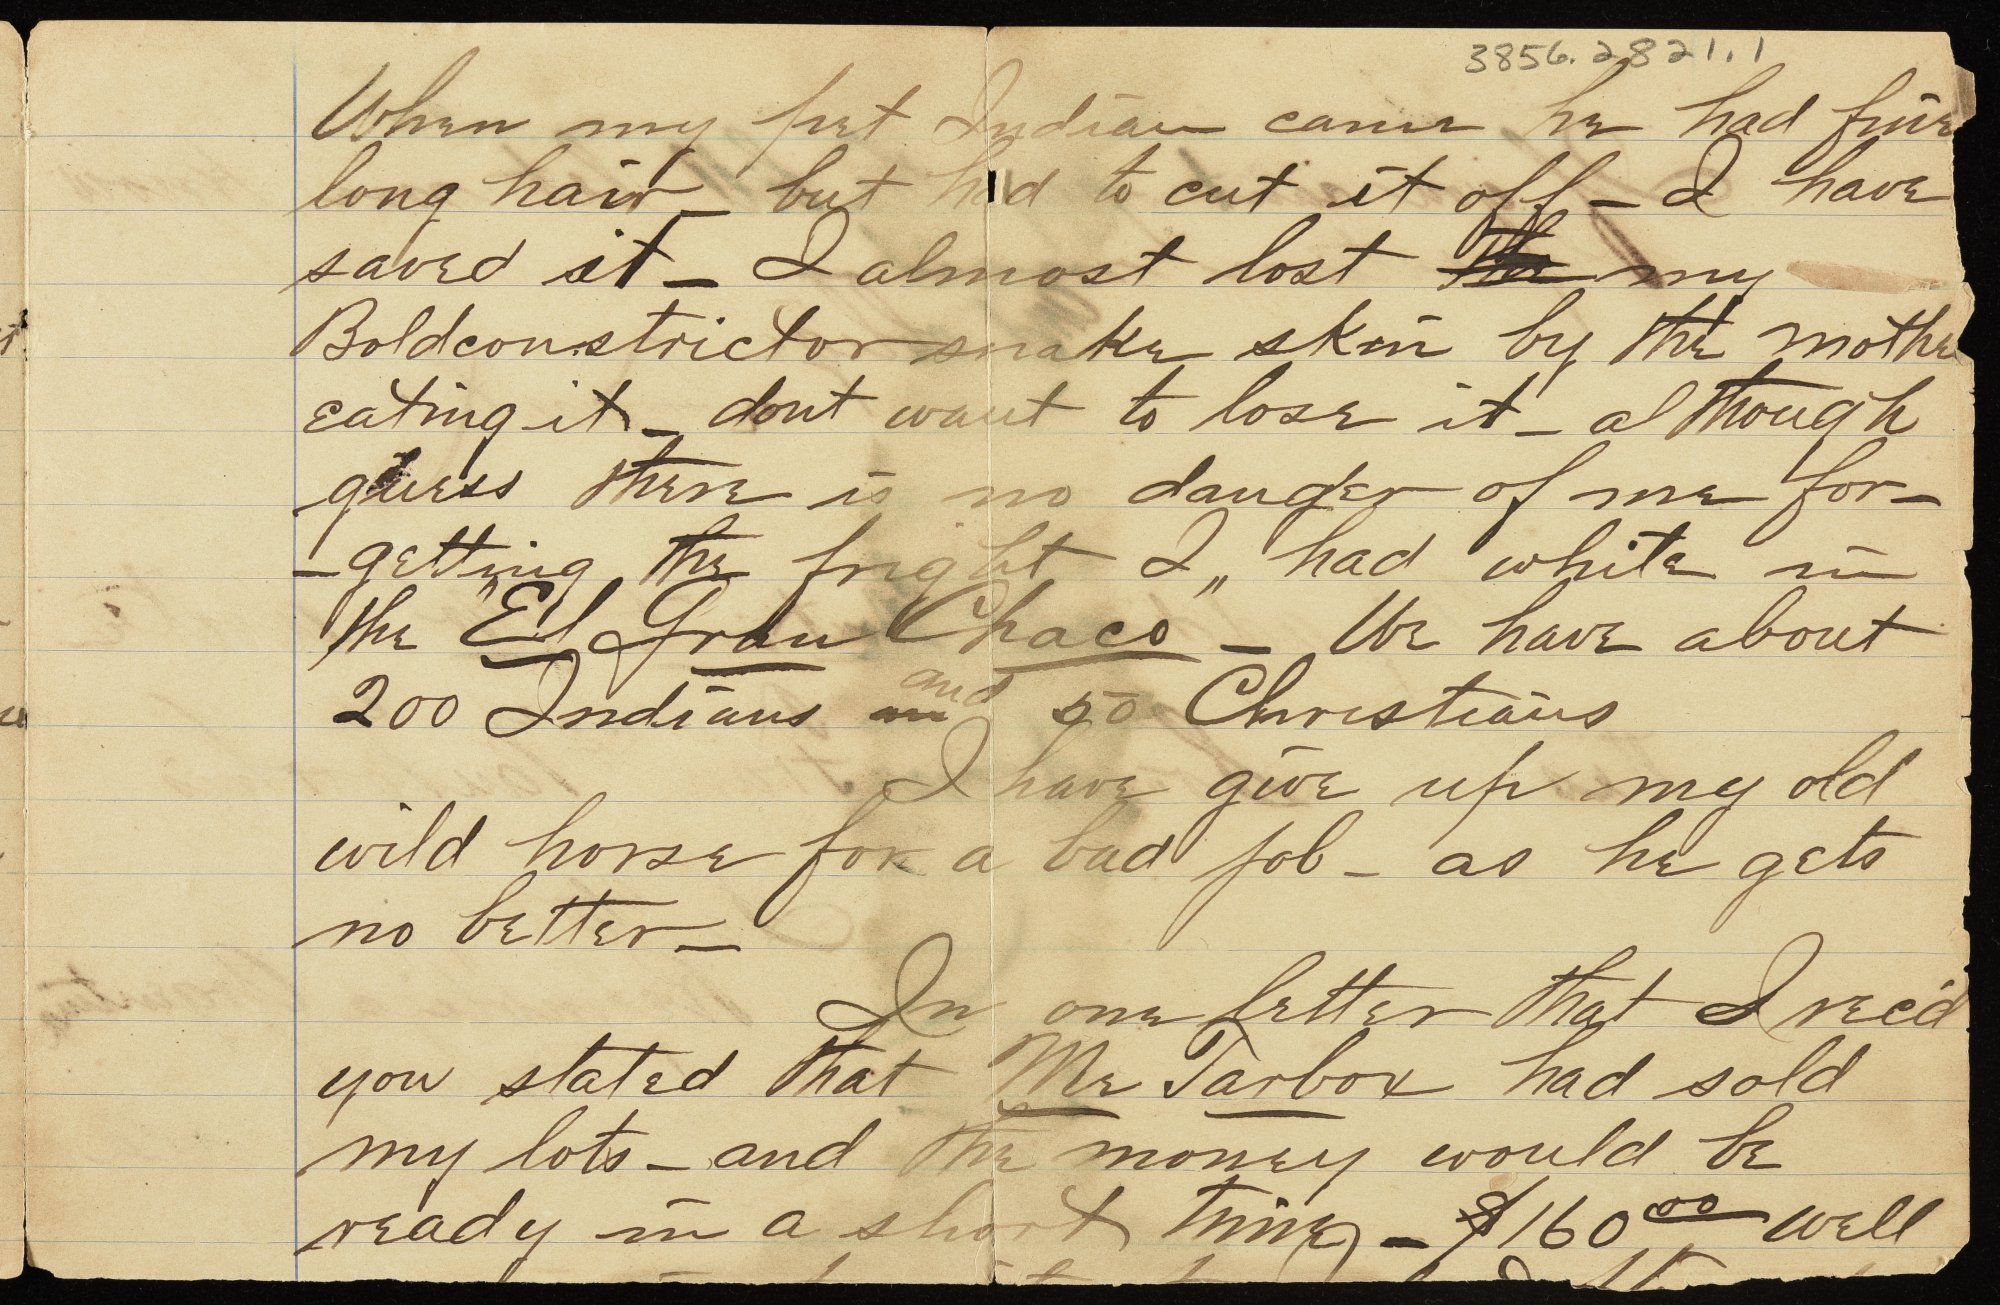 3856.2821.1
When my pet Indian came he had fine
long hair - but had to cut it off - I have
saved it - I almost lost the my
Boldconstrictor snake skin by the mothe
eating it - dont want to lose it - although
guess there is no danger of me for-
-getting the fright I had white in
the "El Gran Chaco" - We have about
200 Indians and 50 Christians
I have give up my old
wild horse for a bad job - as he gets
no better -
In one letter that I rec'd
you stated that Mr Tarbox had sold
my lots - and the money would be
ready in a short time - $160.00 well